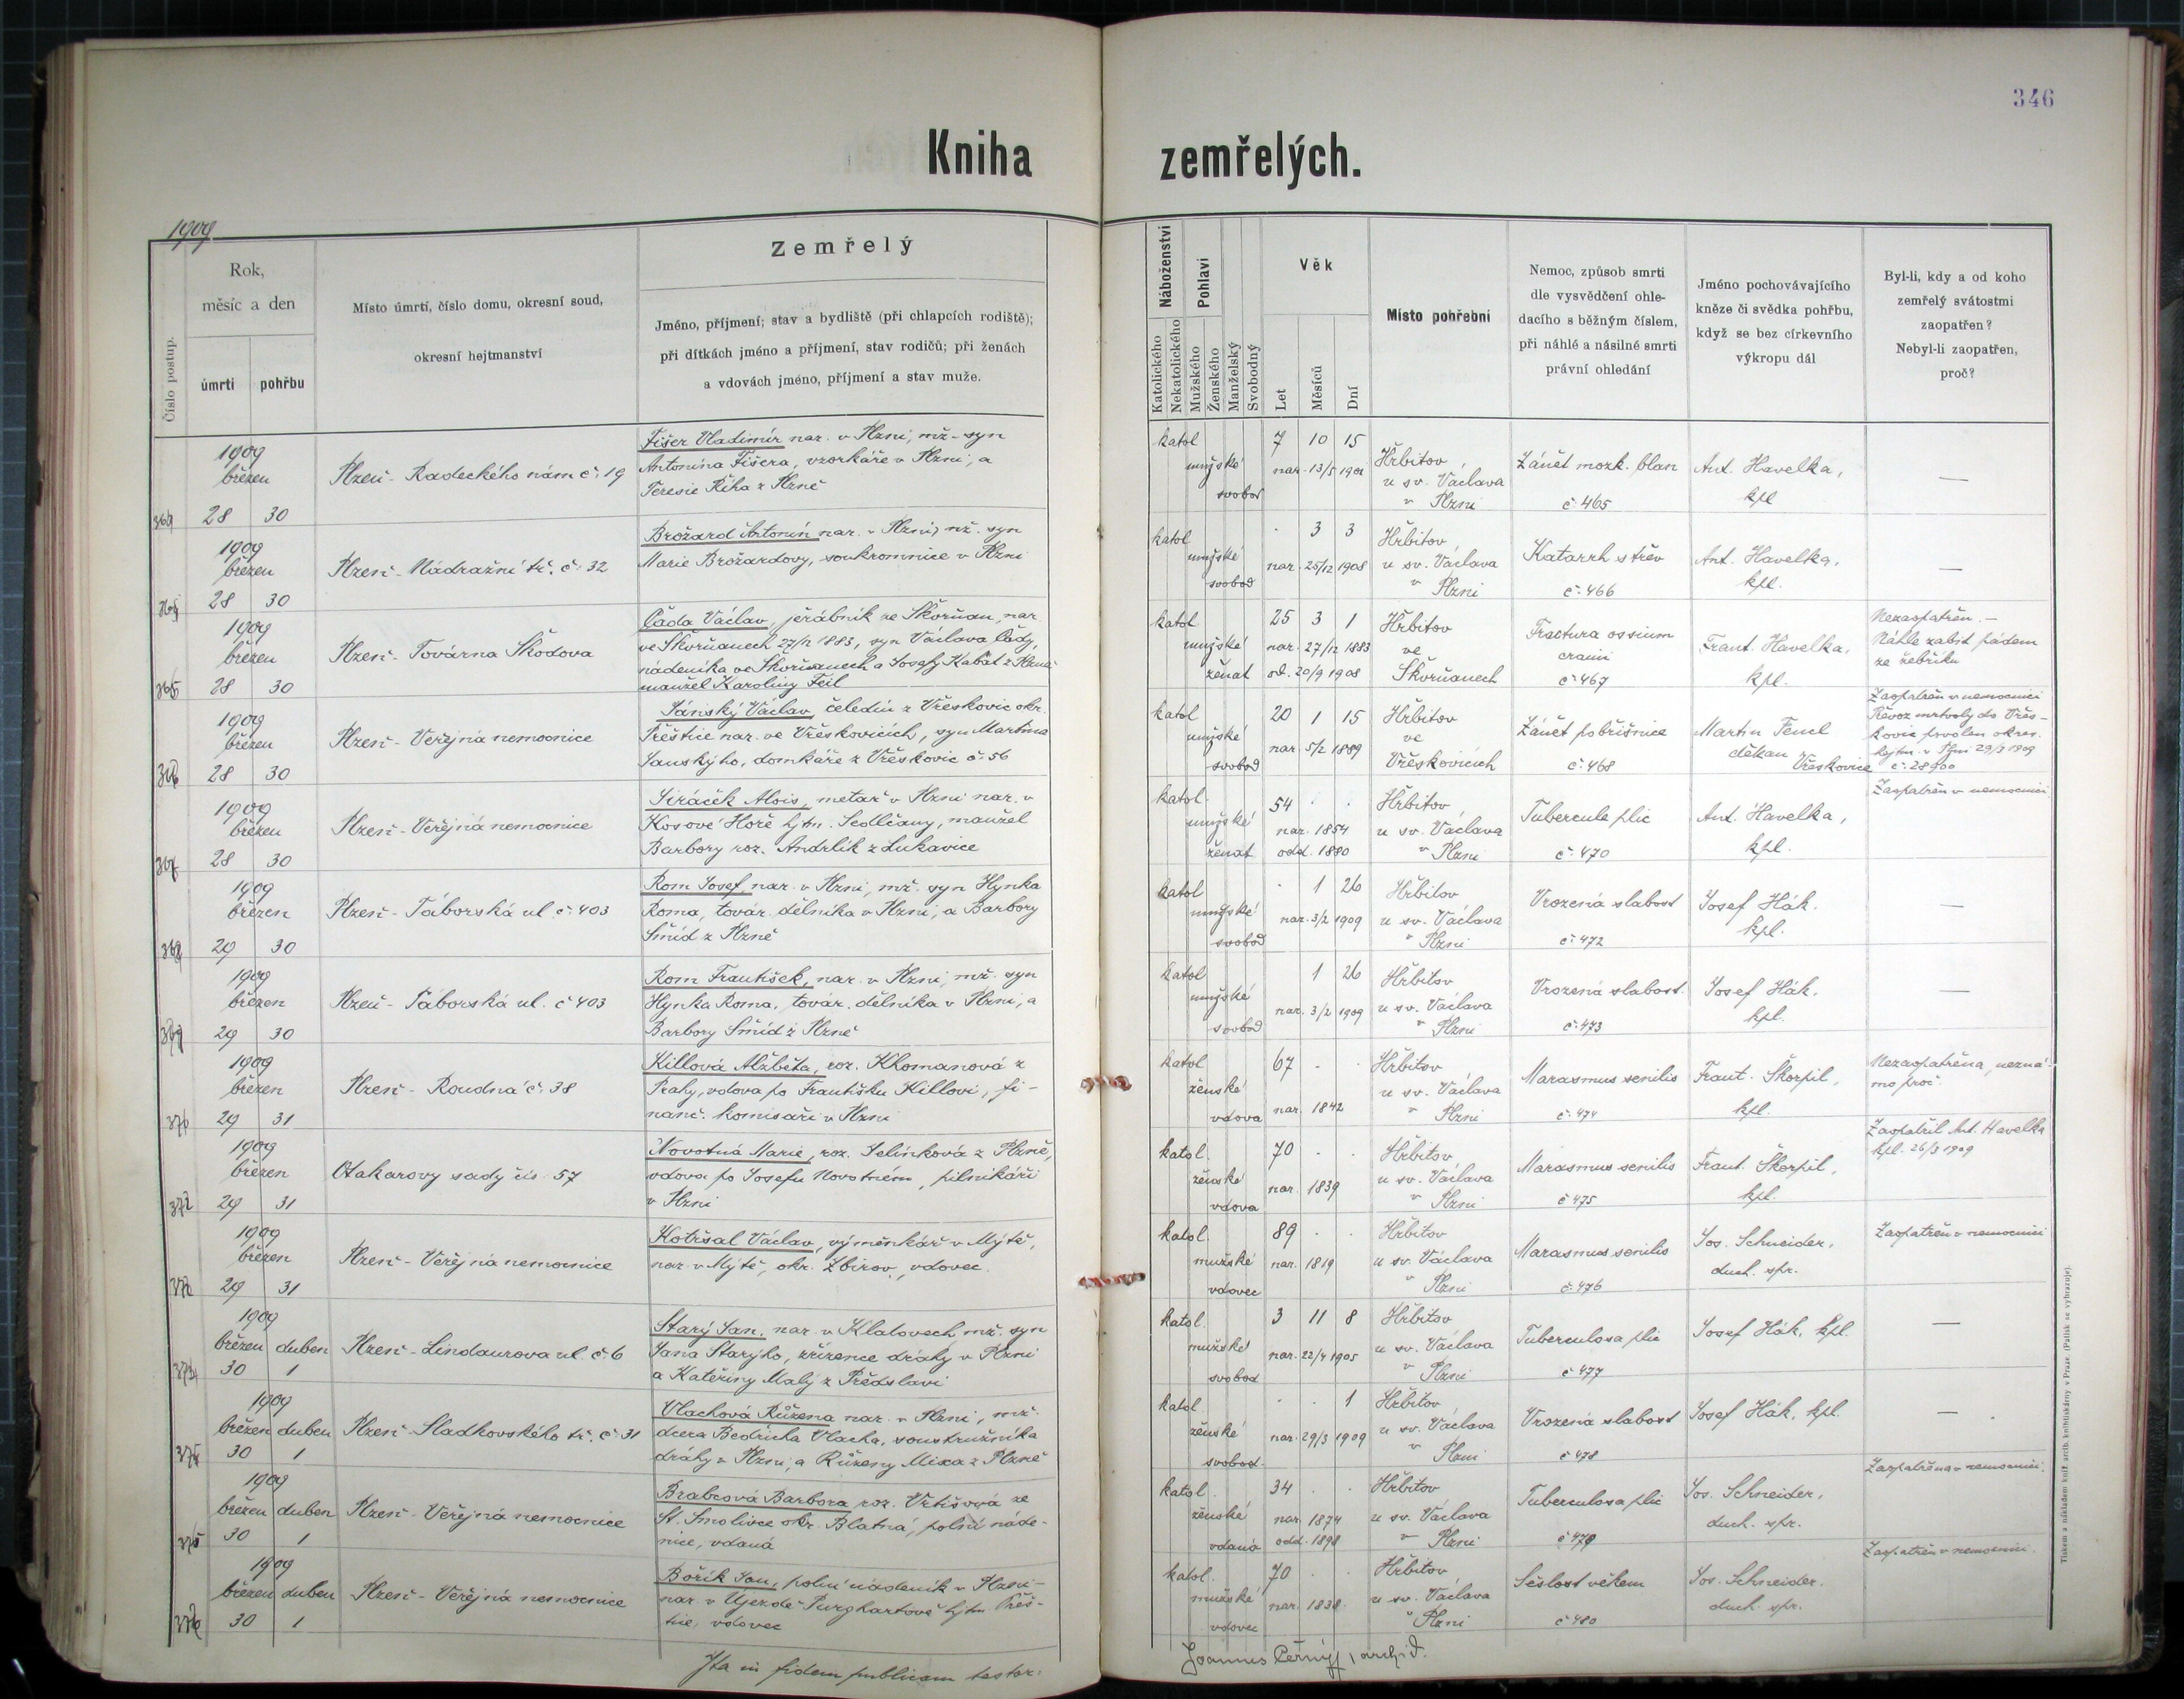 346
Kniha zemřelých.
1909
Číslo postup.
Rok,
měsíc a den
úmrtí
pohřbu
Místo úmrtí, číslo domu, okresní soud,
okresní hejtmanství
Zemřelý
Jméno, příjmení; stav a bydliště (při chlapcích rodiště);
při dítkách jméno a příjmení, stav rodičů; při ženách
a vdovách jméno, příjmení a stav muže.
Náboženství
Katolického
Nekatolického
Pohlaví
Mužského
Ženského
Manželský
Svobodný
Věk
Let
Měsíců
Dní
Místo pohřební
Nemoc, způsob smrti
dle vysvědčení ohle-
dacího s běžným číslem,
při náhlé a násilné smrti
právní ohledání
Jméno pochovávajícího
kněze či svědka pohřbu,
když se bez církevního
výkropu dál
Byl-li, kdy a od koho
zemřelý svátostmi
zaopatřen?
Nebyl-li zaopatřen,
proč?
1909
březen
28 30
Plzeň - Radeckého nám č. 19
Fišer Vladimír nar. v Plzni, mž. syn
Antonína Fišera, vzorkáře v Plzni, a
Terezie Říha z Plzně
katol
mužské
svobod
7 10 15
nar. 13/5 1901
Hřbitov
u sv. Václava
v Plzni
Zánět mozk. blan
č. 465
Ant. Havelka,
kpl
—
1909
březen
28 30
Plzeň - Nádražní tř. č. 32
Brožard Antonín nar. v Plzni, nž. syn
Marie Brožardovy, soukromnice v Plzni
katol
mužské
svobod
. 3 3
nar. 25/12 1908
Hřbitov
u sv. Václava
v Plzni
Katarrh střev
č. 466
Ant. Havelka,
kpl.
—
365
1909
březen
28 30
Plzeň - Továrna Škodova
Čada Václav, jeřábník ze Škvrňan, nar.
ve Škvrňanech 27/12 1883, syn Václava Čady,
nádeníka ve Škvrňanech a Josefy Kabát z Plzně
manžel Karoliny Feil
katol
mužské
ženat
25 3 1
nar. 27/12 1883
od. 20/9 1908
Hřbitov
ve
Škvrňanech
Fractura ossium
cranii
č. 467
Frant. Havelka,
kpl.
Nezaopatřen. -
Náhle zabit pádem
ze žebříku
1909
březen
28 30
Plzeň - Veřejná nemocnice
Jánský Václav, čeledín z Vřeskovic okr.
Přeštice nar. ve Vřeskovicích, syn Martina
Janského, domkáře z Vřeskovic č. 56
katol
mužské
svobod
20 1 15
nar 5/2 1889
Hřbitov
ve
Vřeskovicích
Zánět pobřišnice
č. 468
Martin Fencl
děkan
Vřeskovice
Zaopatřen v nemocnici
Převoz mrtvoly do Vřes-
kovic povolen okres.
hejtm. v Plzni 29/3 1909
č. 28900
367
1909
březen
28 30
Plzeň - Veřejná nemocnice
Siráček Alois, metař v Plzni nar. v
Kosově Hoře hjtm. Sedlčany, manžel
Barbory roz. Andrlík z Lukavice
katol.
mužské
ženat
54 . .
nar. 1854
odd. 1880
Hřbitov
u sv. Václava
v Plzni
Tubercula plic
č. 470
Ant. Havelka,
kpl.
Zaopatřen v nemocnici
368
1909
březen
29 30
Plzeň - Táborská ul. č. 403
Rom Josef nar. v Plzni, mž. syn Hynka
Roma, továr. dělníka v Plzni, a Barbory
Šmíd z Plzně
katol
mužské
svobod
. 1 26
nar. 3/2 1909
Hřbitov
u sv. Václava
v Plzni
Vrozená slabost
č. 472
Josef Hák.
kpl.
—
369
1909
březen
29 30
Plzeň - Táborská ul. č 403
Rom František, nar. v Plzni, mž. syn
Hynka Roma, továr. dělníka v Plzni, a
Barbory Šmíd z Plzně
katol
mužské
svobod
1 26
nar. 3/2 1909
Hřbitov
u sv. Václava
v Plzni
Vrozená slabost.
č. 473
Josef Hák.
kpl.
—
1909
březen
29 31
Plzeň - Roudná č. 38
Killová Alžběta, roz. Khomanová z
Prahy, vdova po Františku Killovi, fi-
nanč. komisaři v Plzni
katol
ženské
vdova
67 . .
nar. 1842
Hřbitov
u sv. Václava
v Plzni
Marasmus senilis
č. 474
Frant. Škorpil,
kpl.
Nezaopatřena, nezná-
mo proč.
1909
březen
29 31
Otakarovy sady čís. 57
Novotná Marie, roz. Jelínková z Plzně,
vdova po Josefu Novotném, pilnikáři
v Plzni
katol.
ženské
vdova
70 . .
nar. 1839
Hřbitov
u sv. Václava
v Plzni
Marasmus senilis
č 475
Frant. Škorpil,
kpl.
Zaopatřil Ant. Havelka
kpl. 26/3 1909
1909
březen
29 31
Plzeň - Veřejná nemocnice
Kotršal Václav, výměnkář v Mýtě,
nar. v Mýtě, okr. Zbirov, vdovec.
katol.
mužské
vdovec
89 . .
nar. 1819
Hřbitov
u sv. Václava
v Plzni
Marasmus senilis
č. 476
Jos. Schneider,
duch. spr.
Zaopatřen v nemocnici
1909
březen duben
30 1
Plzeň - Lindaurova ul. č. 6
Starý Jan, nar. v Klatovech mž. syn
Jana Starýho, zřízence dráhy v Plzni
a Kateřiny Malý z Předslavi
katol.
mužské
svobod
3 11 8
nar. 22/4 1905
Hřbitov
u sv. Václava
v Plzni
Tuberculosa plic
č 477
Josef Hák, kpl.
—
1909
březen duben
30 1
Plzeň - Sladkovského tř. č. 31
Vlachová Růžena nar. v Plzni, mž.
dcera Bedřicha Vlacha, soustružníka
dráhy v Plzni, a Růženy Mixa z Plzně
katol.
ženské
svobod.
. . 1
nar. 29/3 1909
Hřbitov
u sv. Václava
v Plzni
Vrozená slabost
č 478
Josef Hák, kpl.
—
1909
březen duben
30 1
Plzeň - Veřejná nemocnice
Brabcová Barbora roz. Vrtišová ze
St. Smolivce okr. Blatná, polní náde-
nice, vdaná
katol.
ženské
vdaná
34 . .
nar. 1874
odd. 1898
Hřbitov
u sv. Václava
v Plzni
Tuberculosa plic
č 479
Jos. Schneider,
duch. spr.
Zaopatřena v nemocnici.
376
1909
březen duben
30 1
Plzeň - Veřejná nemocnice
Bořík Jan, polní nádeník v Plzni -
nar. v Újezdě Purghartově hjtm Přeš-
tice, vdovec
katol.
mužské
vdovec
70 . .
nar. 1838.
Hřbitov
u sv. Václava
v Plzni
Sešlost věkem
č 480
Jos. Schneider.
duch. spr.
Zaopatřen v nemocnici.
Ita in fidem publicam testor:
Joannes Černý, archid.
Tiskem a nákladem kníž. arcib. knihtiskárny v Praze. (Patisk se vyhrazuje).